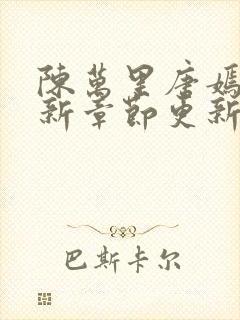 陳萬里唐嫣
新章節更新
巴斯卡尔